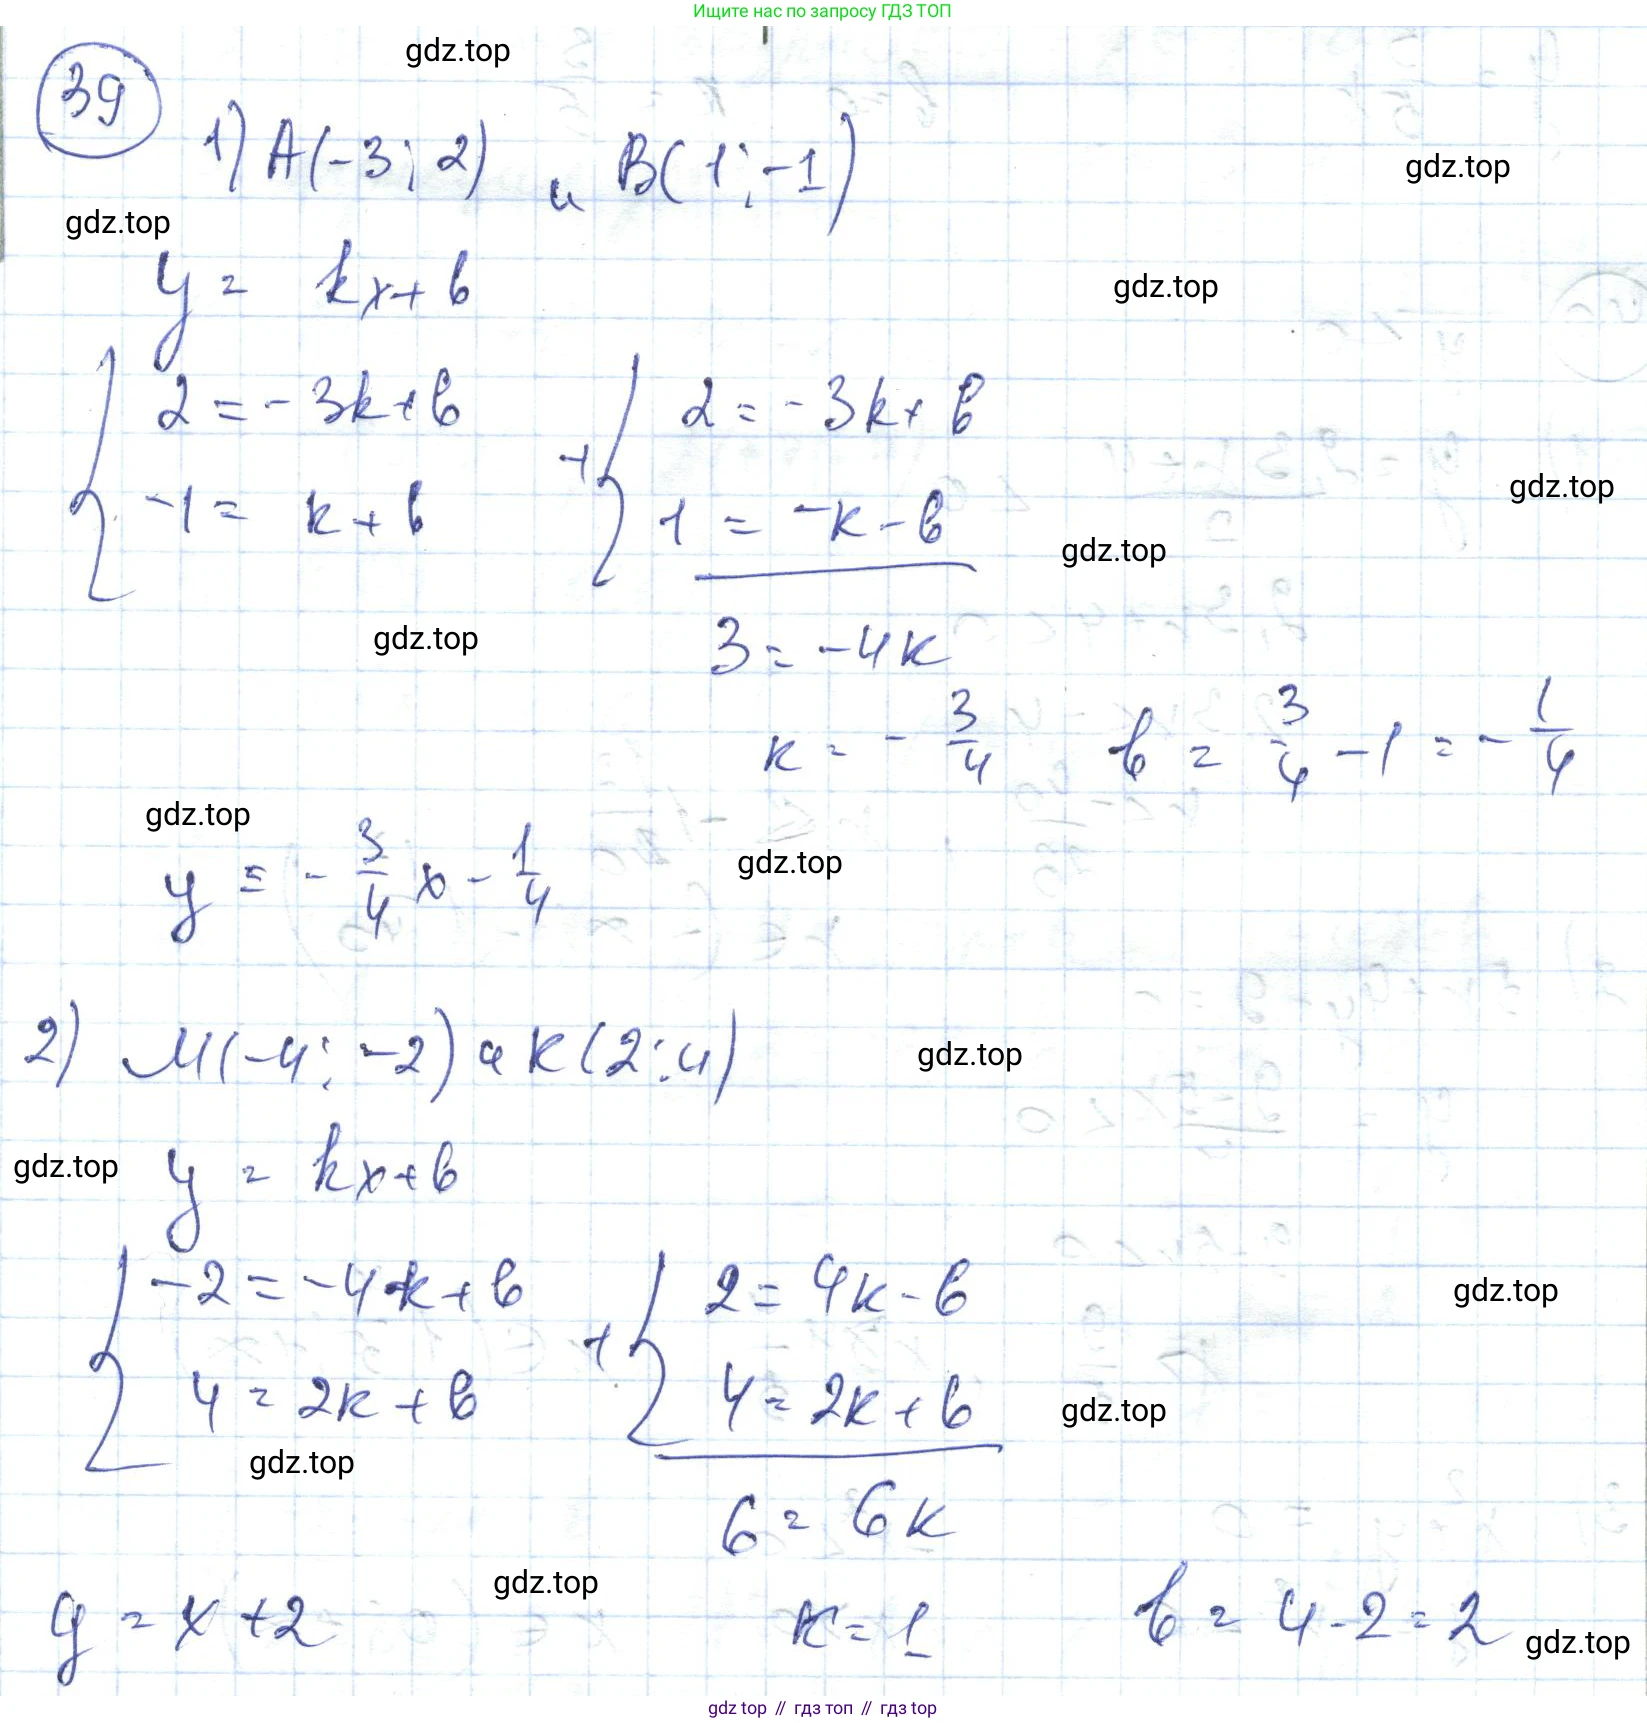 Ищите нас по запросу ГДЗ ТОП
gdz.top
39
1) A(-3; 2) и B(1; -1)
gdz.top
gdz.top
y = kx + b
gdz.top
{ 2 = -3k + b
-1 = k + b
+ { 2 = -3k + b
1 = -k - b
gdz.top
gdz.top
gdz.top
3 = -4k
k = - 3/4 b = 3/4 - 1 = - 1/4
gdz.top
gdz.top
y = - 3/4 x - 1/4
2) M(-4; -2) и K(2; 4)
gdz.top
gdz.top
y = kx + b
{ -2 = -4k + b
4 = 2k + b
+ { 2 = 4k - b
4 = 2k + b
gdz.top
gdz.top
gdz.top
6 = 6k
gdz.top
y = x + 2 k = 1 b = 4 - 2 = 2
gdz.top
gdz top // гдз топ // гдз top